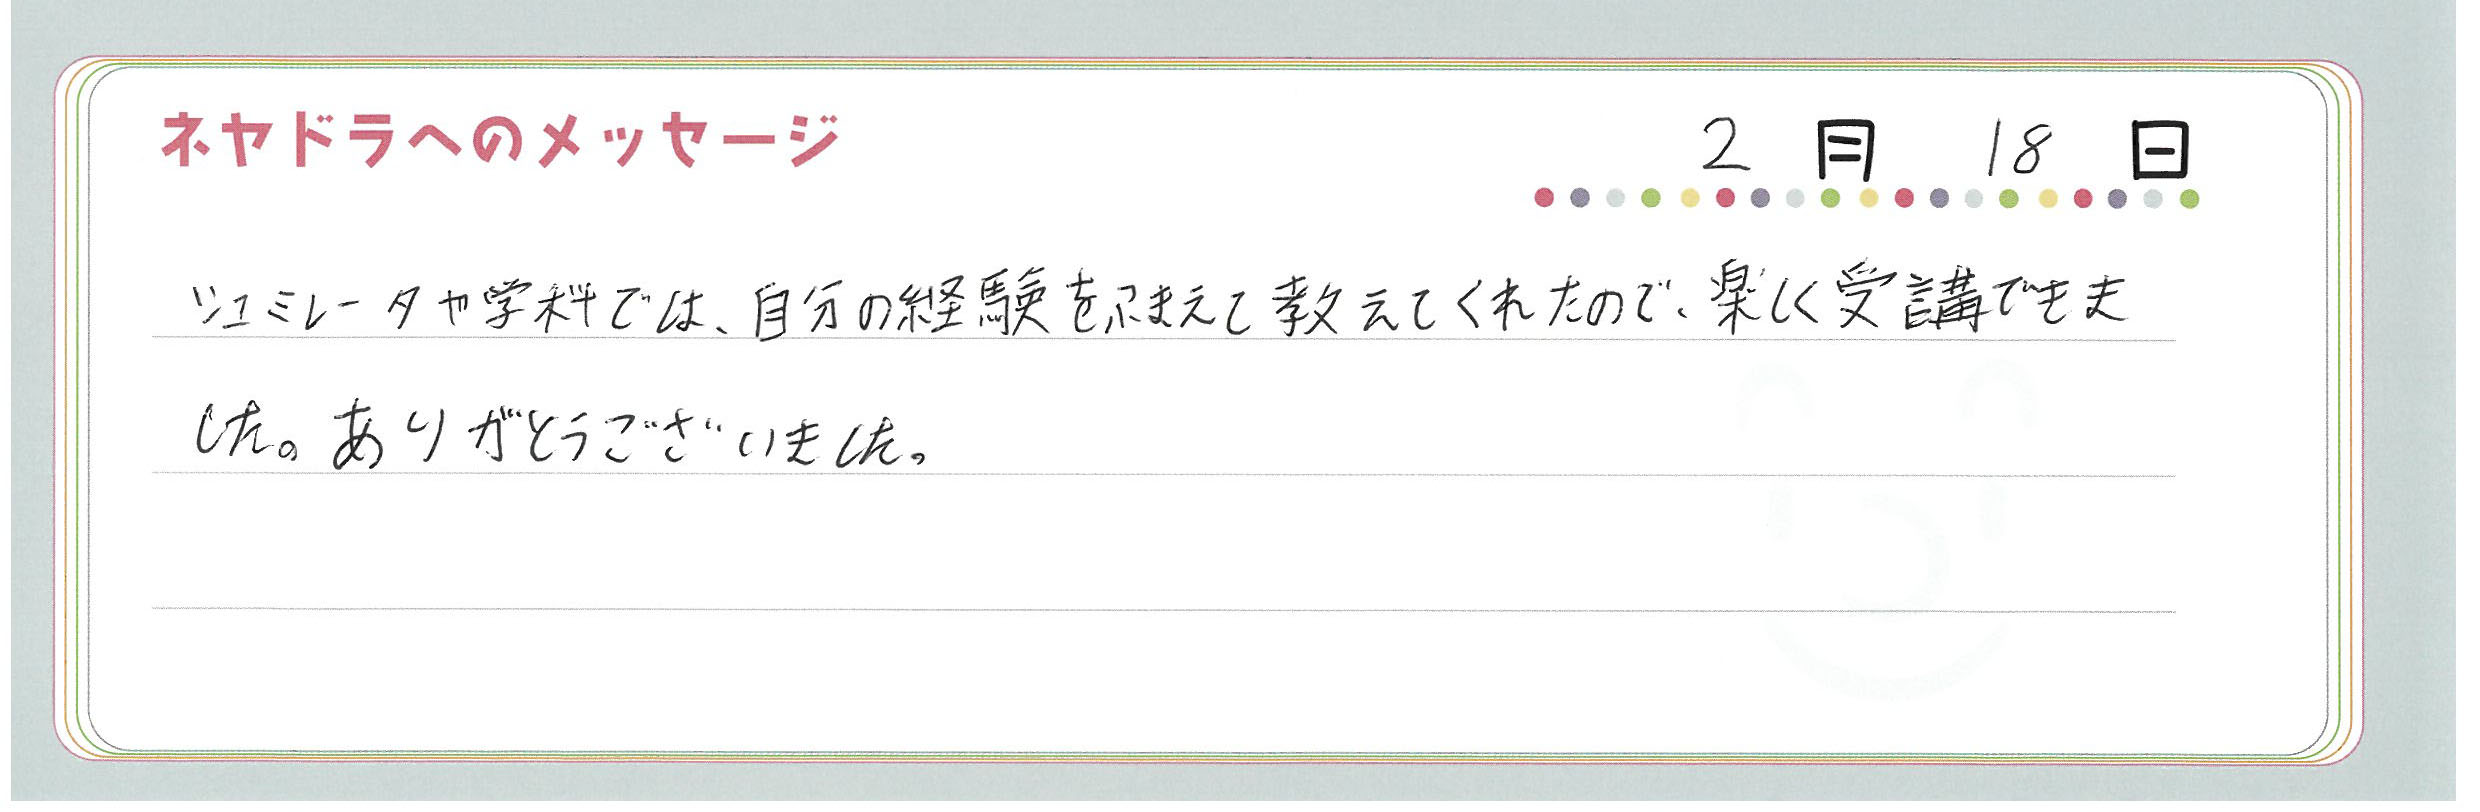 ネヤドラへのメッセージ
2月 18日
シュミレータや学科では、自分の経験をふまえて教えてくれたので、楽しく受講できま
した。ありがとうございました。